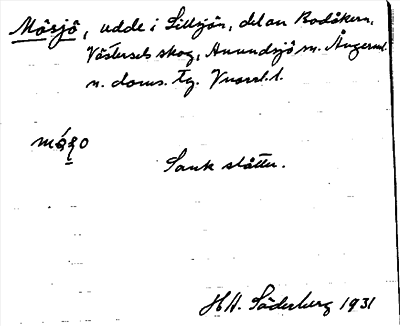 Mösjö, udde i Sillsjön, del av Bodåkern,
Västersels skog, Anundsjö sn. Ångerml.
n. doms. tg. l.
Sank slåtter.
H.H. Söderberg 1931